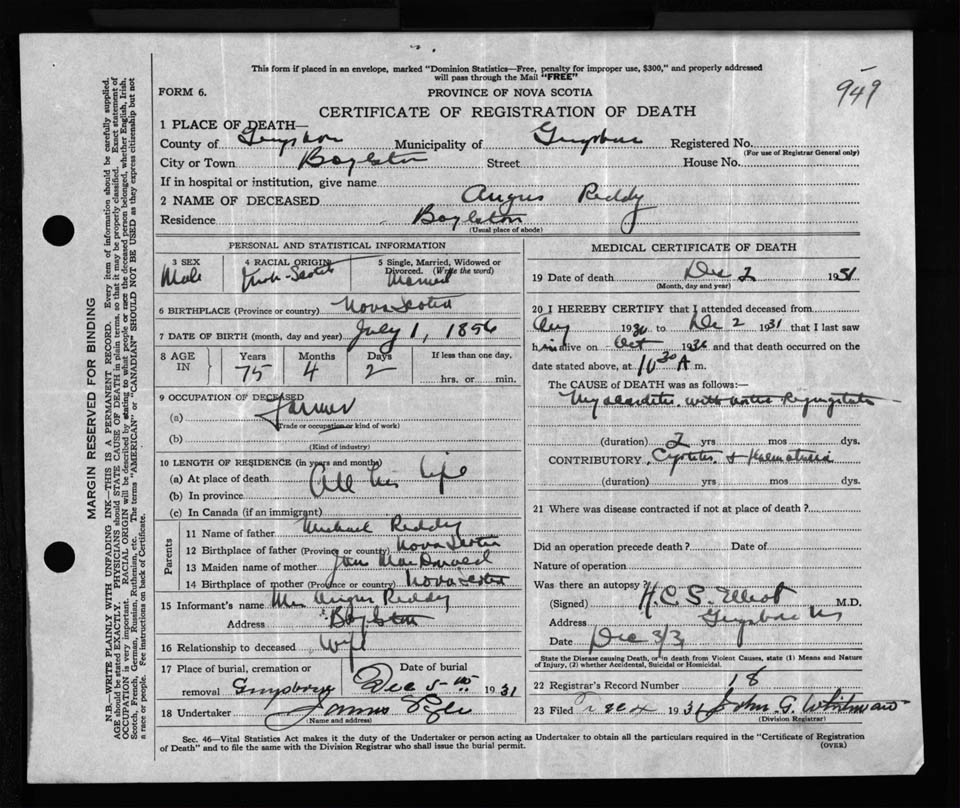 This form if placed in an envelope, marked "Dominion Statistics—Free, penalty for improper use, $300," and properly addressed
will pass through the Mail "FREE"
949
FORM 6.
PROVINCE OF NOVA SCOTIA
CERTIFICATE OF REGISTRATION OF DEATH
1 PLACE OF DEATH—
County of Municipality of Registered No.
(For use of Registrar General only)
City or Town Boylston Street House No.
If in hospital or institution, give name
2 NAME OF DECEASED Angus Reddy
Residence Boylston
(Usual place of abode)
PERSONAL AND STATISTICAL INFORMATION
3 SEX 4 RACIAL ORIGIN 5 Single, Married, Widowed or
Divorced. (Write the word)
Male Married
6 BIRTHPLACE (Province or country) Nova Scotia
7 DATE OF BIRTH (month, day and year) July 1, 1856
8 AGE IN Years Months Days If less than one day,
75 4 2 hrs. or min.
9 OCCUPATION OF DECEASED
(a) Farmer
(Trade or occupation or kind of work)
(b)
(Kind of industry)
10 LENGTH OF RESIDENCE (in years and months)
(a) At place of death
(b) In province All his life
(c) In Canada (if an immigrant)
Parents
11 Name of father Michael Reddy
12 Birthplace of father (Province or country) Nova Scotia
13 Maiden name of mother Jane MacDonald
14 Birthplace of mother (Province or country) Nova Scotia
15 Informant's name Mrs Angus Reddy
Address Boylston
16 Relationship to deceased Wife
17 Place of burial, cremation or Date of burial
removal Guysboro Dec 5 1931
18 Undertaker James
(Name and address)
MEDICAL CERTIFICATE OF DEATH
19 Date of death Dec 2 1931
(Month, day and year)
20 I HEREBY CERTIFY that I attended deceased from
Aug 1930 to Dec 2 1931 that I last saw
him alive on Oct 193 and that death occurred on the
date stated above, at 10 30 A m.
The CAUSE of DEATH was as follows:—
Myocarditis with Regurgitation
(duration) 2 yrs mos dys.
CONTRIBUTORY Cystitis & Haematuria
(duration) yrs mos dys.
21 Where was disease contracted if not at place of death?
Did an operation precede death? Date of
Nature of operation
Was there an autopsy?
(Signed) H.C.S. Elliot M.D.
Address Guysboro NS
Date Dec 3/31
State the Disease causing Death, or in death from Violent Causes, state (1) Means and Nature
of Injury, (2) whether Accidental, Suicidal or Homicidal.
22 Registrar's Record Number 18
23 Filed Dec 4 1931 John G.
(Division Registrar)
Sec. 46—Vital Statistics Act makes it the duty of the Undertaker or person acting as Undertaker to obtain all the particulars required in the "Certificate of Registration
of Death" and to file the same with the Division Registrar who shall issue the burial permit.
(OVER)
MARGIN RESERVED FOR BINDING
N.B.—WRITE PLAINLY WITH UNFADING INK—THIS IS A PERMANENT RECORD. Every item of information should be carefully supplied.
AGE should be stated EXACTLY. PHYSICIANS should STATE CAUSE OF DEATH in plain terms, so that it may be properly classified. Exact statement of
OCCUPATION is very important. RACIAL ORIGIN will be described by stating to what people or race the deceased person belonged, whether English, Irish,
Scotch, French, German, Russian, Ruthenian, etc. The terms "AMERICAN" or "CANADIAN" SHOULD NOT BE USED as they express citizenship but not
a race or people. Fee instructions on back of Certificate.